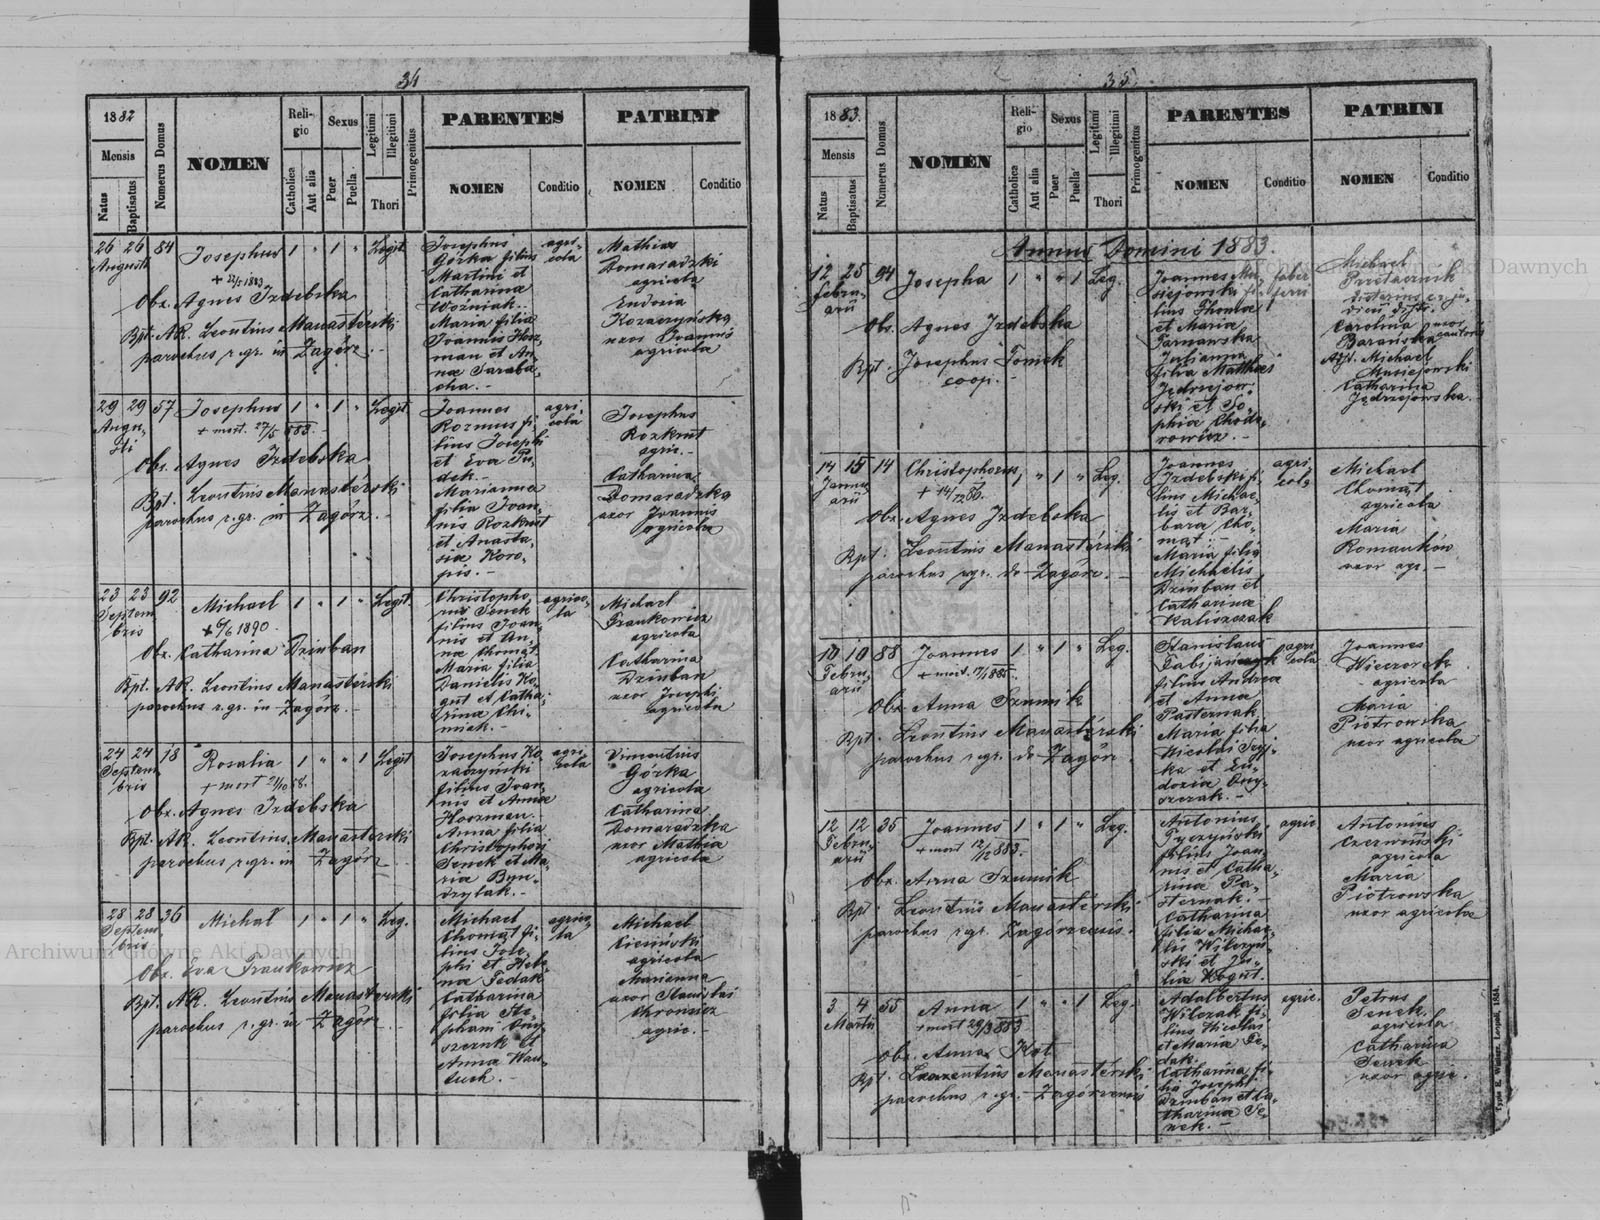 34
1882
Mensis
Natus
Baptisatus
Numerus Domus
NOMEN
Reli-
gio
Catholica
Aut alia
Sexus
Puer
Puella
Legitimi
Illegitimi
Thori
Primogenitus
PARENTES
NOMEN
Conditio
PATRINI
NOMEN
Conditio
26 26 84 Josephus 1 " 1 " Legit.
Augusti
+ 12/5 1883
Obs. Agnes Izdebska
Bpt. AR. Leontius Manasterski
parochus r.gr. in Zagórz.-
Josephus
Górka filius
Martini et
Catharina
Woźniak.-
Maria filia
Joannis Horz-
man et An-
na Taraba-
cha.-
agri-
cola
Mathias
Domaradzki
agricola
Eudoxia
Kozaczyńska
uxor Joannis
agricola
29 29 57 Josephus 1 " 1 " Legit.
Augu-
sti
+ mort. 27/5 883.
Obs. Agnes Izdebska
Bpt. Leontius Manasterski
parochus r.gr. in Zagórz.-
Joannes
Rozmus fi-
lius Josephi
et Eva Du-
dek.-
Marianna
filia Joan-
nis Rozkrut
et Anasta-
sia Koro-
pis.-
agri-
cola
Josephus
Rozkrut
agric.-
Catharina
Domaradzka
uxor Joannis
agricola
23 23 92 Michael 1 " 1 " Legit.
Septem
bris
+ 6/6 1890.
Obs. Catharina Dziuban
Bpt. AR. Leontius Manasterski
parochus r.gr. in Zagórz.-
Christopho-
rus Senek
filius Joan-
nis et An-
na Chomąt.
Maria filia
Danielis Ko-
gut et Catha-
rina Chi-
mak.-
agrico-
la
Michael
Frankowicz
agricola
Catharina
Dziuban
uxor Josephi
agricola
24 24 18 Rosalia 1 " " 1 Legit
Septem
bris
Obs. Agnes Izdebska
Bpt. AR. Leontius Manasterski
parochus r.gr. in Zagórz
Josephus Ko-
zaczyński
filius Joan-
nis et Anna
Horzman.
Anna filia
Christophori
Senek et Ma-
ria Byn-
drylak.-
agri-
cola
Vincentius
Górka
agricola
Catharina
Domaradzka
uxor Mathia
agricola
28 28 36 Michał 1 " 1 " Leg.
Septem
bris
Obs. Eva Frankowicz
Bpt. AR. Leontius Manasterski
parochus r.gr. in Zagórz.-
Michael
Chomąt fi-
lius Jose-
phi et Hele-
na Fedak
Catharina
filia Ste-
phani Ony-
szczuk et
Anna
agrico-
la
Michael
Ciesiński
agricola
Marianna
uxor Stanislai
agric.-
35.
1883.
Mensis
Natus
Baptisatus
Numerus Domus
NOMEN
Reli-
gio
Catholica
Aut alia
Sexus
Puer
Puella
Legitimi
Illegitimi
Thori
Primogenitus
PARENTES
NOMEN
Conditio
PATRINI
NOMEN
Conditio
Annus Domini 1883.
12 25 94 Josepha 1 " " 1 Leg.
Febru-
arii
Obs. Agnes Izdebska
Bpt. Josephus Tomek
coop.-
Joannes Mu-
siejowski fi-
lius Thomæ
et Maria
Tarnawska
Julianna
filia Matthæi
Jędrzejow-
ski et So-
phia Choda-
rowicz.-
faber
ferri
Michael
Carolina uxor
Barańska cantoris
Ass. Michael
Musiejowski
Catharina
Jędrzejowska.
14 15 14 Christophorus 1 " 1 " Leg.
Janu-
arii
+ 14/12 86.
Obs. Agnes Izdebska
Bpt. Leontius Manasterski
parochus r.gr. de Zagórz.-
Joannes
Izdebski fi-
lius Michae-
lis et Bar-
bara Cho-
mąt.-
Maria filia
Michaelis
Dziuban et
Catharina
Kaliszczak
agri-
cola
Michael
Chomąt
agricola
Maria
Romanków
uxor agr.-
10 10 88 Joannes 1 " 1 " Leg.
Febru-
arii
Obs. Anna Szumik
Bpt. Leontius Manasterski
parochus r.gr. de Zagórz.
Stanislaus
Fabijańczyk
filius Andreæ
et Anna
Pasternak.
Maria filia
Nicolai Szy-
ka et Eu-
doxia Ony-
szczak.-
agri-
cola
Joannes
Wieczorek
agricola
Maria
Piotrowska
uxor agricolæ
12 12 35 Joannes 1 " 1 " Leg.
Febru-
arii
+ mort 12/12 883.
Obs. Anna Szumik
Bpt. Leontius Manasterski
parochus r.gr. Zagórzensis.
Antonius
Pyczyński
filius Joan-
nis et Catha-
rina Pa-
sternak.-
Catharina
filia Michae-
lis Wilczyń-
ski et Ju-
lia Kogut.
agric
Antonius
Czerwiński
agricola
Maria
Piotrowska
uxor agricolæ
3 4 55 Anna 1 " " 1 Leg.
Martii
+ mort 29/3 883
Obs. Anna Kot
Bpt. Leontius Manasterski
parochus r.gr. Zagórzensis
Adalbertus
Wilczak fi-
lius Nicolai
et Maria Fe-
dak.
Catharina fi-
lia Josephi
Dziuban et Ca-
tharina Se-
nek.-
agric.
Petrus
Senek.
agricola
Catharina
Senek
uxor agric.
Typis E. Winiarz, Leopoli, 1884.
Archiwum Główne Akt Dawnych
Archiwum Główne Akt Dawnych